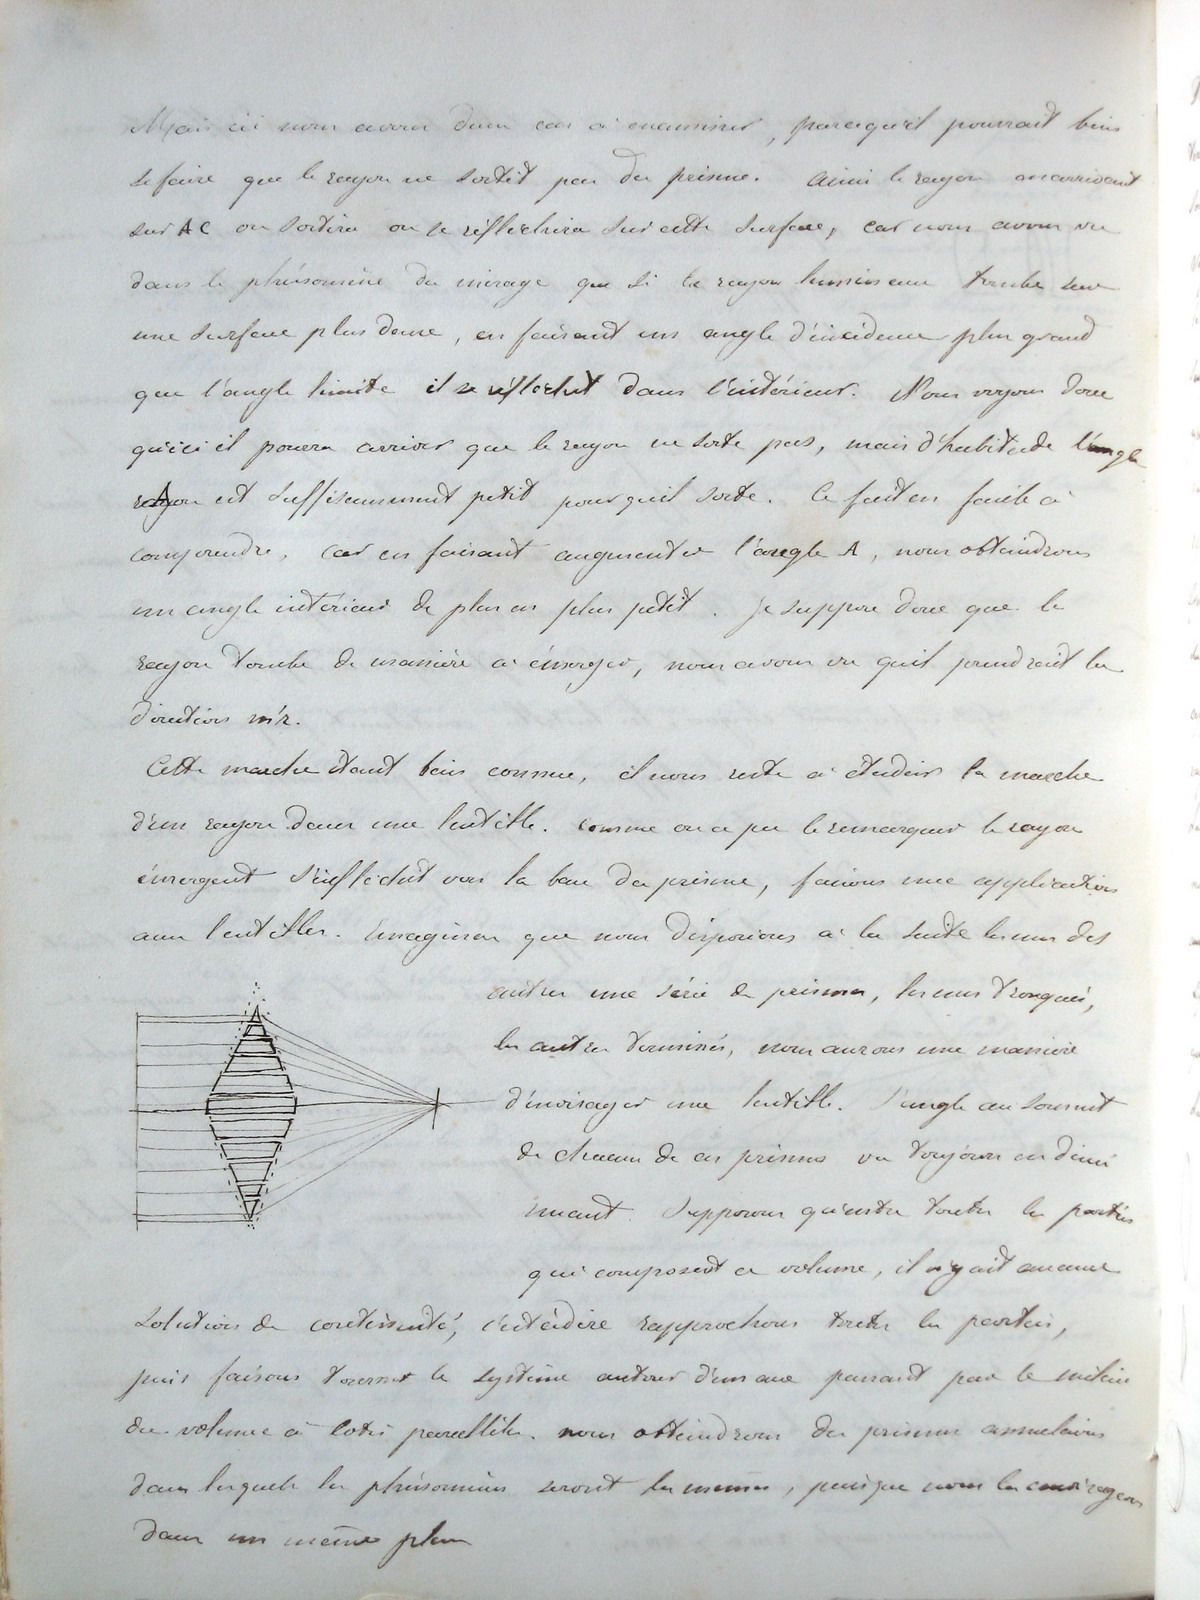 Mais ici nous avons deux cas à examiner, parcequ'il pourrait bien
se faire que le rayon ne sortit pas du prisme. Ainsi le rayon arrivant
sur AC ou sortira ou se réflechira sur cette surface, car nous avons vu
dans le phénomène du mirage que si le rayon lumineux tombe sur
une surface plus dense, en faisant un angle d'incidence plus grand
que l'angle limite il se réflechit dans l'intérieur. Nous voyons donc
qu'ici il pourra arriver que le rayon ne sorte pas, mais d'habitude l'angle
A est suffisamment petit pour qu'il sorte. Ce fait est facile à
comprendre, car en faisant augmenter l'angle A, nous obtiendrons
un angle intérieur de plus en plus petit. Je suppose donc que le
rayon tombe de manière à émerger, nous avons vu qu'il prendrait la
direction m'r.
Cette marche étant bien connue, il nous reste à étudier la marche
d'un rayon dans une lentille. comme on a pu le remarquer le rayon
émergent s'infléchit vers la base du prisme, faisons une application
aux lentilles. Imaginons que nous disposions à la suite les uns des
autres une série de prismes, les uns tronqués,
les autres terminés, nous aurons une manière
d'envisager une lentille. L'angle au sommet
de chacun de ces prismes va toujours en dimi
nuant. Supposons qu'entre toutes les parties
qui composent ce volume, il n'y ait aucune
solution de continuité, c'est à dire rapprochons toutes les parties,
puis faisons tourner le système autour d'un axe passant par le milieu
du volume à cotés parallèles. nous obtiendrons des prismes annulaires
dans lesquels les phénomènes seront les mêmes, puisque nous les envisageons
dans un même plan